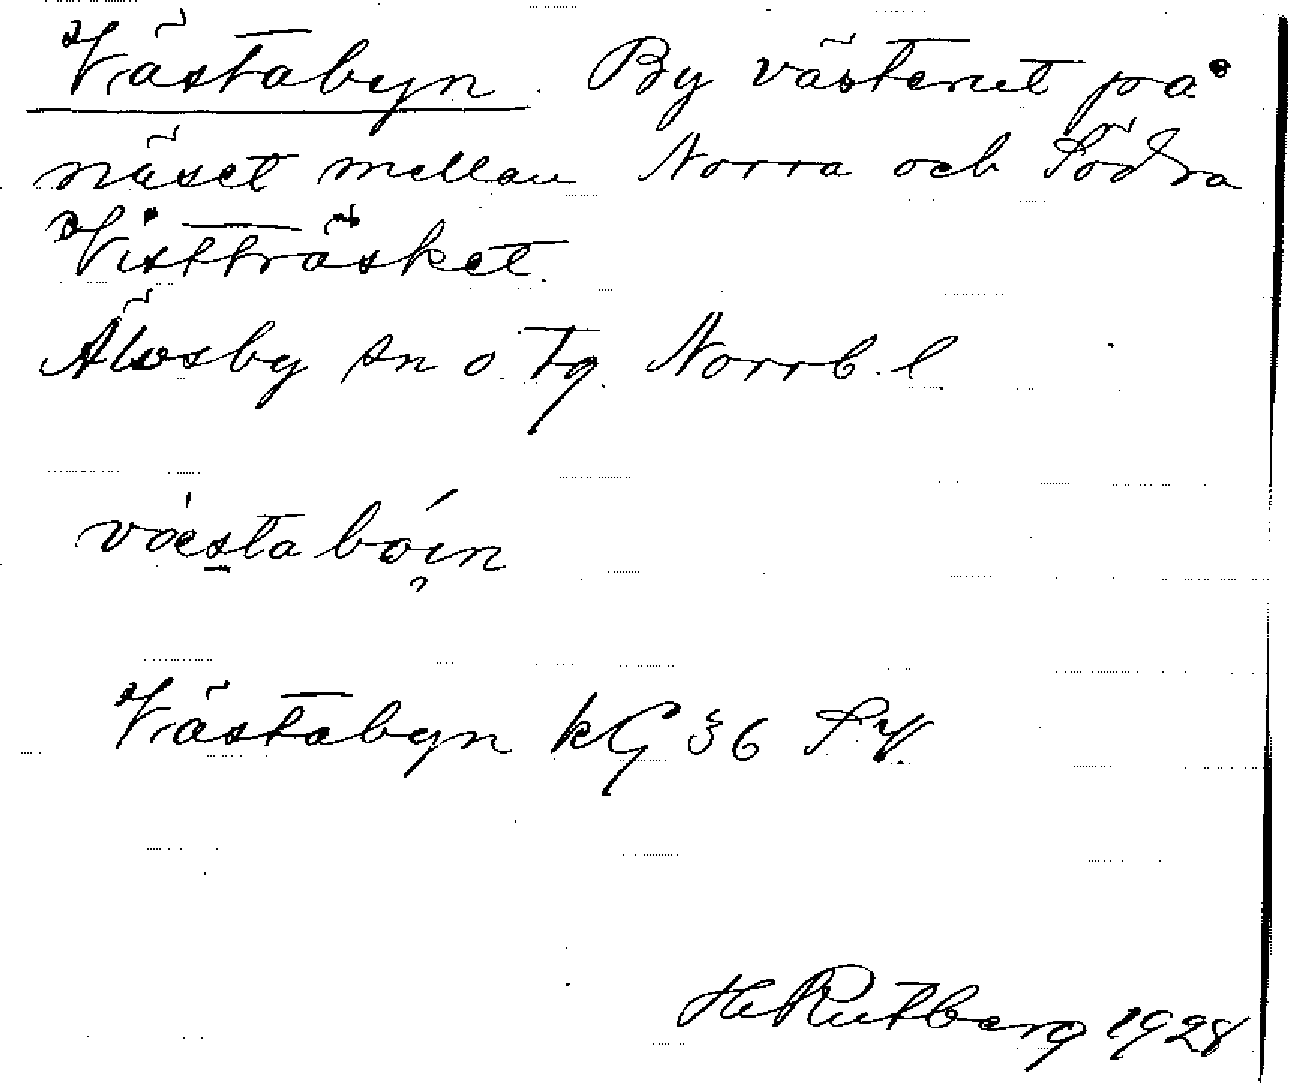 Västabyn. By västerut på
näset mellan Norra och Södra
Vistträsket.
Älvsby sn o. tg. Norrb. l
västa bóin
Västabyn kG § 6
H Rutberg 1928